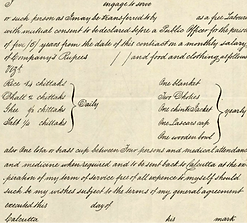 I engage to serve
or such person as I may be transferred to by as a free Labourer
with mutual consent to be declared before a Public Officer for the period
of five (5) years from the date of this contract on a monthly salary
of Company's Rupees ( ) and food and clothing as follows
Vizt.
Rice 14 chittaks One blanket
Dhall 2 chittaks Two Dhoties
Ghee ½ chittaks Daily One chintz Jacket yearly
Salt ¼ chittaks One Lascars cap
One wooden bowl
also One lota or brass cup between Four persons and medical attendance
and medicine when required and to be sent back to Calcutta at the ex
piration of my term of service free of all expense to myself should
such be my wishes subject to the terms of my general agreement
executed this day of
Calcutta his mark